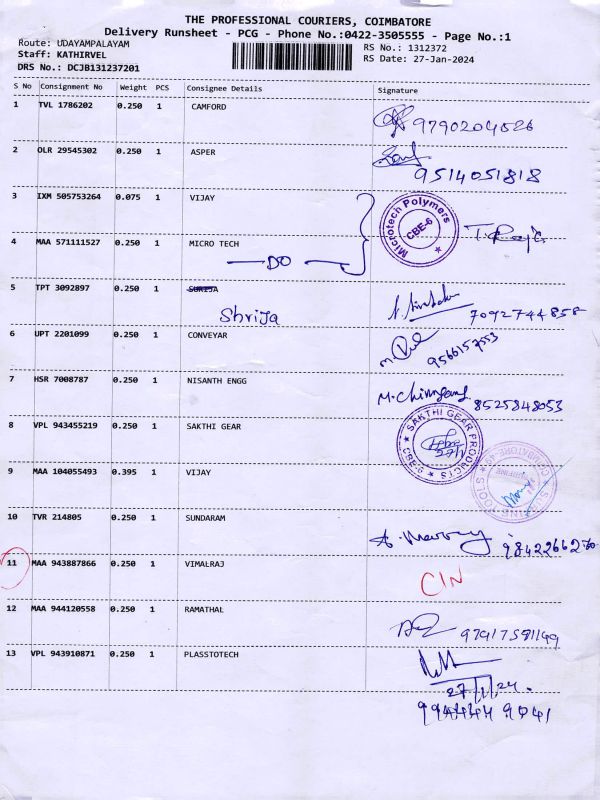 THE PROFESSIONAL COURIERS, COIMBATORE
Delivery Runsheet - PCG - Phone No.:0422-3505555 - Page No.:1
Route: UDAYAMPALAYAM
Staff: KATHIRVEL
DRS No.: DCJB131237201
RS No.: 1312372
RS Date: 27-Jan-2024
S No Consignment No Weight PCS Consignee Details Signature
1 TVL 1786202 0.250 1 CAMFORD
9790204526
2 OLR 29545302 0.250 1 ASPER
9514051818
3 IXM 505753264 0.075 1 VIJAY
Microtech Polymers
CBE-6
4 MAA 571111527 0.250 1 MICRO TECH
DO
5 TPT 3092897 0.250 1 SURIJA
Shrija
7092744858
6 UPT 2201099 0.250 1 CONVEYAR
9566157553
7 HSR 7008787 0.250 1 NISANTH ENGG
8525848053
8 VPL 943455219 0.250 1 SAKTHI GEAR
SAKTHI GEAR PRODUCTS
CBE-6
9 MAA 104055493 0.395 1 VIJAY
10 TVR 214805 0.250 1 SUNDARAM
11 MAA 943887866 0.250 1 VIMALRAJ
CIN
12 MAA 944120558 0.250 1 RAMATHAL
13 VPL 943910871 0.250 1 PLASSTOTECH
27/1/24